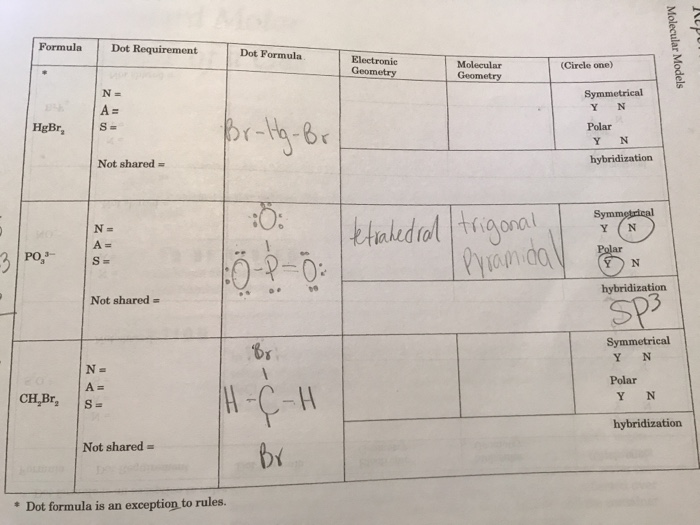 Repo
Molecular Models
Formula Dot Requirement Dot Formula Electronic Geometry Molecular Geometry (Circle one)
*
HgBr₂
N =
A =
S =
Not shared =
Br-Hg-Br
Symmetrical
Y N
Polar
Y N
hybridization
3
PO₃³⁻
N =
A =
S =
Not shared =
:Ö:
:Ö-P-Ö:
tetrahedral
trigonal
Pyramidal
Symmetrical
Y N
Polar
Y N
hybridization
SP3
CH₂Br₂
N =
A =
S =
Not shared =
Br
H-C-H
Br
Symmetrical
Y N
Polar
Y N
hybridization
* Dot formula is an exception to rules.